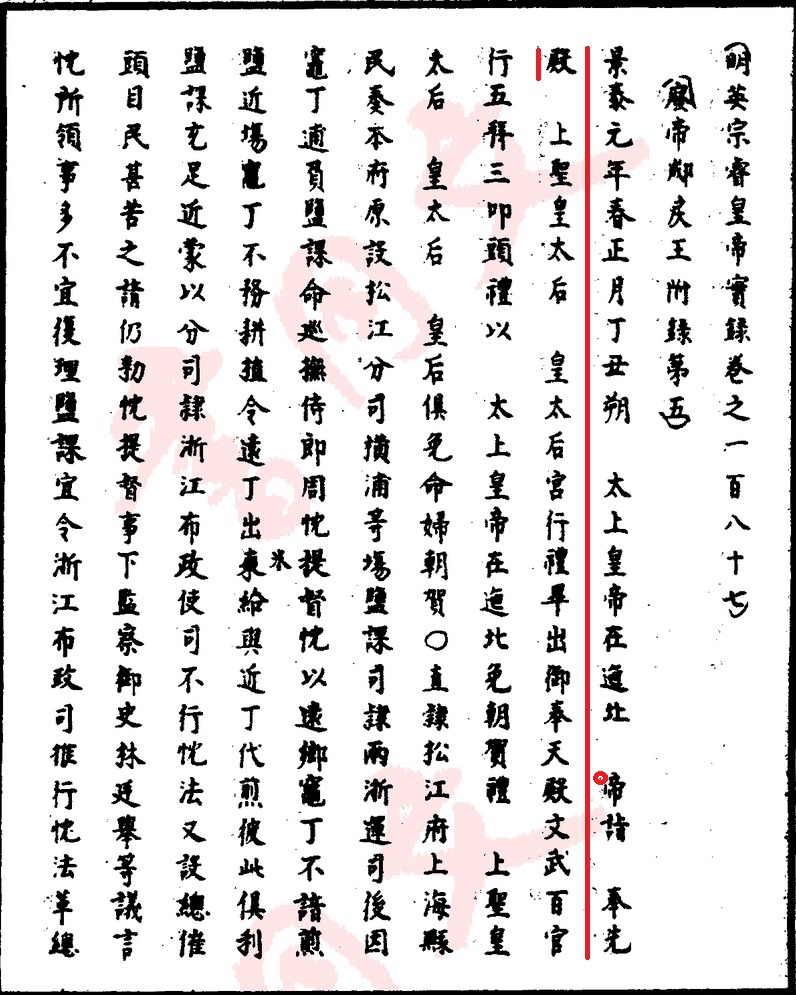 明英宗睿皇帝實録卷之一百八十七
廢帝郕戾王附録第五
景泰元年春正月丁丑朔　太上皇帝在迤北　帝詣　奉先
殿　上聖皇太后　皇太后宮行禮畢出御奉天殿文武百官
行五拜三叩頭禮以　太上皇帝在迤北免朝賀禮　上聖皇
太后　皇太后　皇后俱免命婦朝賀○直隷松江府上海縣
民奏本府原設松江分司横浦等塲鹽課司隷兩浙運司後因
竈丁逋負鹽課命巡撫侍郎周忱提督忱以遠鄉竈丁不諳煎
鹽近塲竈丁不務耕植令遠丁出米給與近丁代煎彼此俱利
鹽課充足近蒙以分司隷浙江布政使司不行忱法又設總催
頭目民甚苦之請仍勑忱提督事下監察御史林廷舉等議言
忱所領事多不宜復理鹽課宜令浙江布政司推行忱法革總